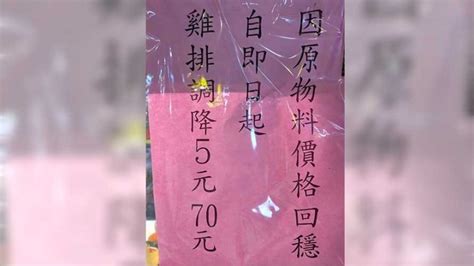 因原物料價格回穩
自即日起
雞排調降5元70元